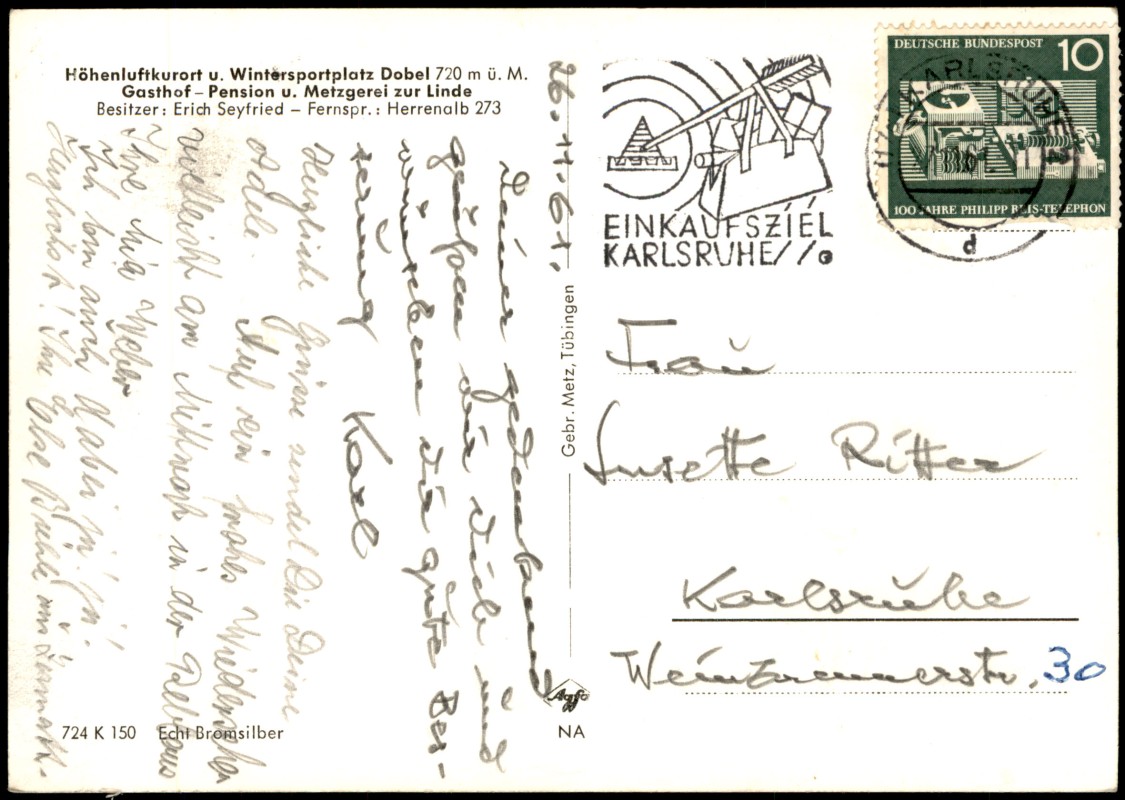 Höhenluftkurort u. Wintersportplatz Dobel 720 m ü. M.
Gasthof – Pension u. Metzgerei zur Linde
Besitzer: Erich Seyfried – Fernspr.: Herrenalb 273
26.11.61.
Deiner gedenkend
grüßen wir Dich und
wünschen Dir gute Bes-
serung Karl
Herzliche Grüsse sendet Dir Deine
Adele. Auf ein frohes Wiedersehen
vielleicht am Mittwoch in der
Ihre
Ich bin auch dabei
Herzlichst! Ihre Else
724 K 150 Echt Bromsilber
Gebr. Metz, Tübingen
Agfa
NA
EINKAUFSZIEL
KARLSRUHE
DEUTSCHE BUNDESPOST 10
100 JAHRE PHILIPP REIS-TELEPHON
KARLSRUHE
d
Frau
Susette Ritter
Karlsruhe
30